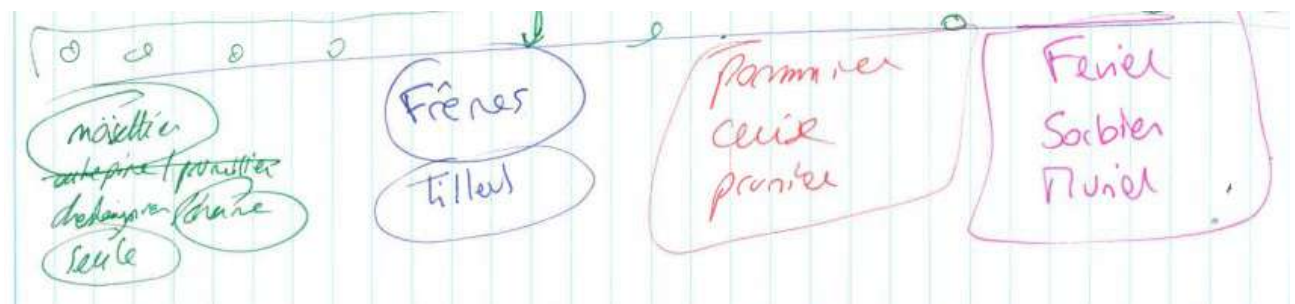 noisettier
aubépine / prunellier
chataignier / chêne
saule
Frênes
Tilleul
Pommier
cerise
prunier
Fevier
Sorbier
Murier